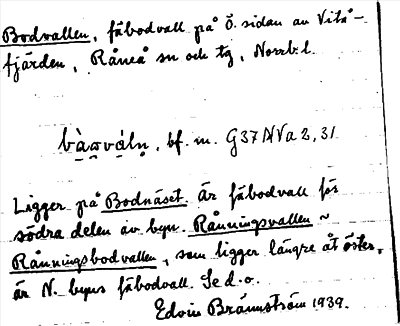 Bodvallen, fäbodvall på ö. sidan av Vitå-
fjärden, Råneå sn och tg, Norrb. l.
bf. m. G37 NVa 2, 31.
Ligger på Bodnäset. är fäbodvall för
södra delen av byn. Rånningsvallen ~
Rånningsbodvallen, som ligger längre åt öster,
är N. byns fäbodvall. Se d. o.
Edvin Brännström 1939.